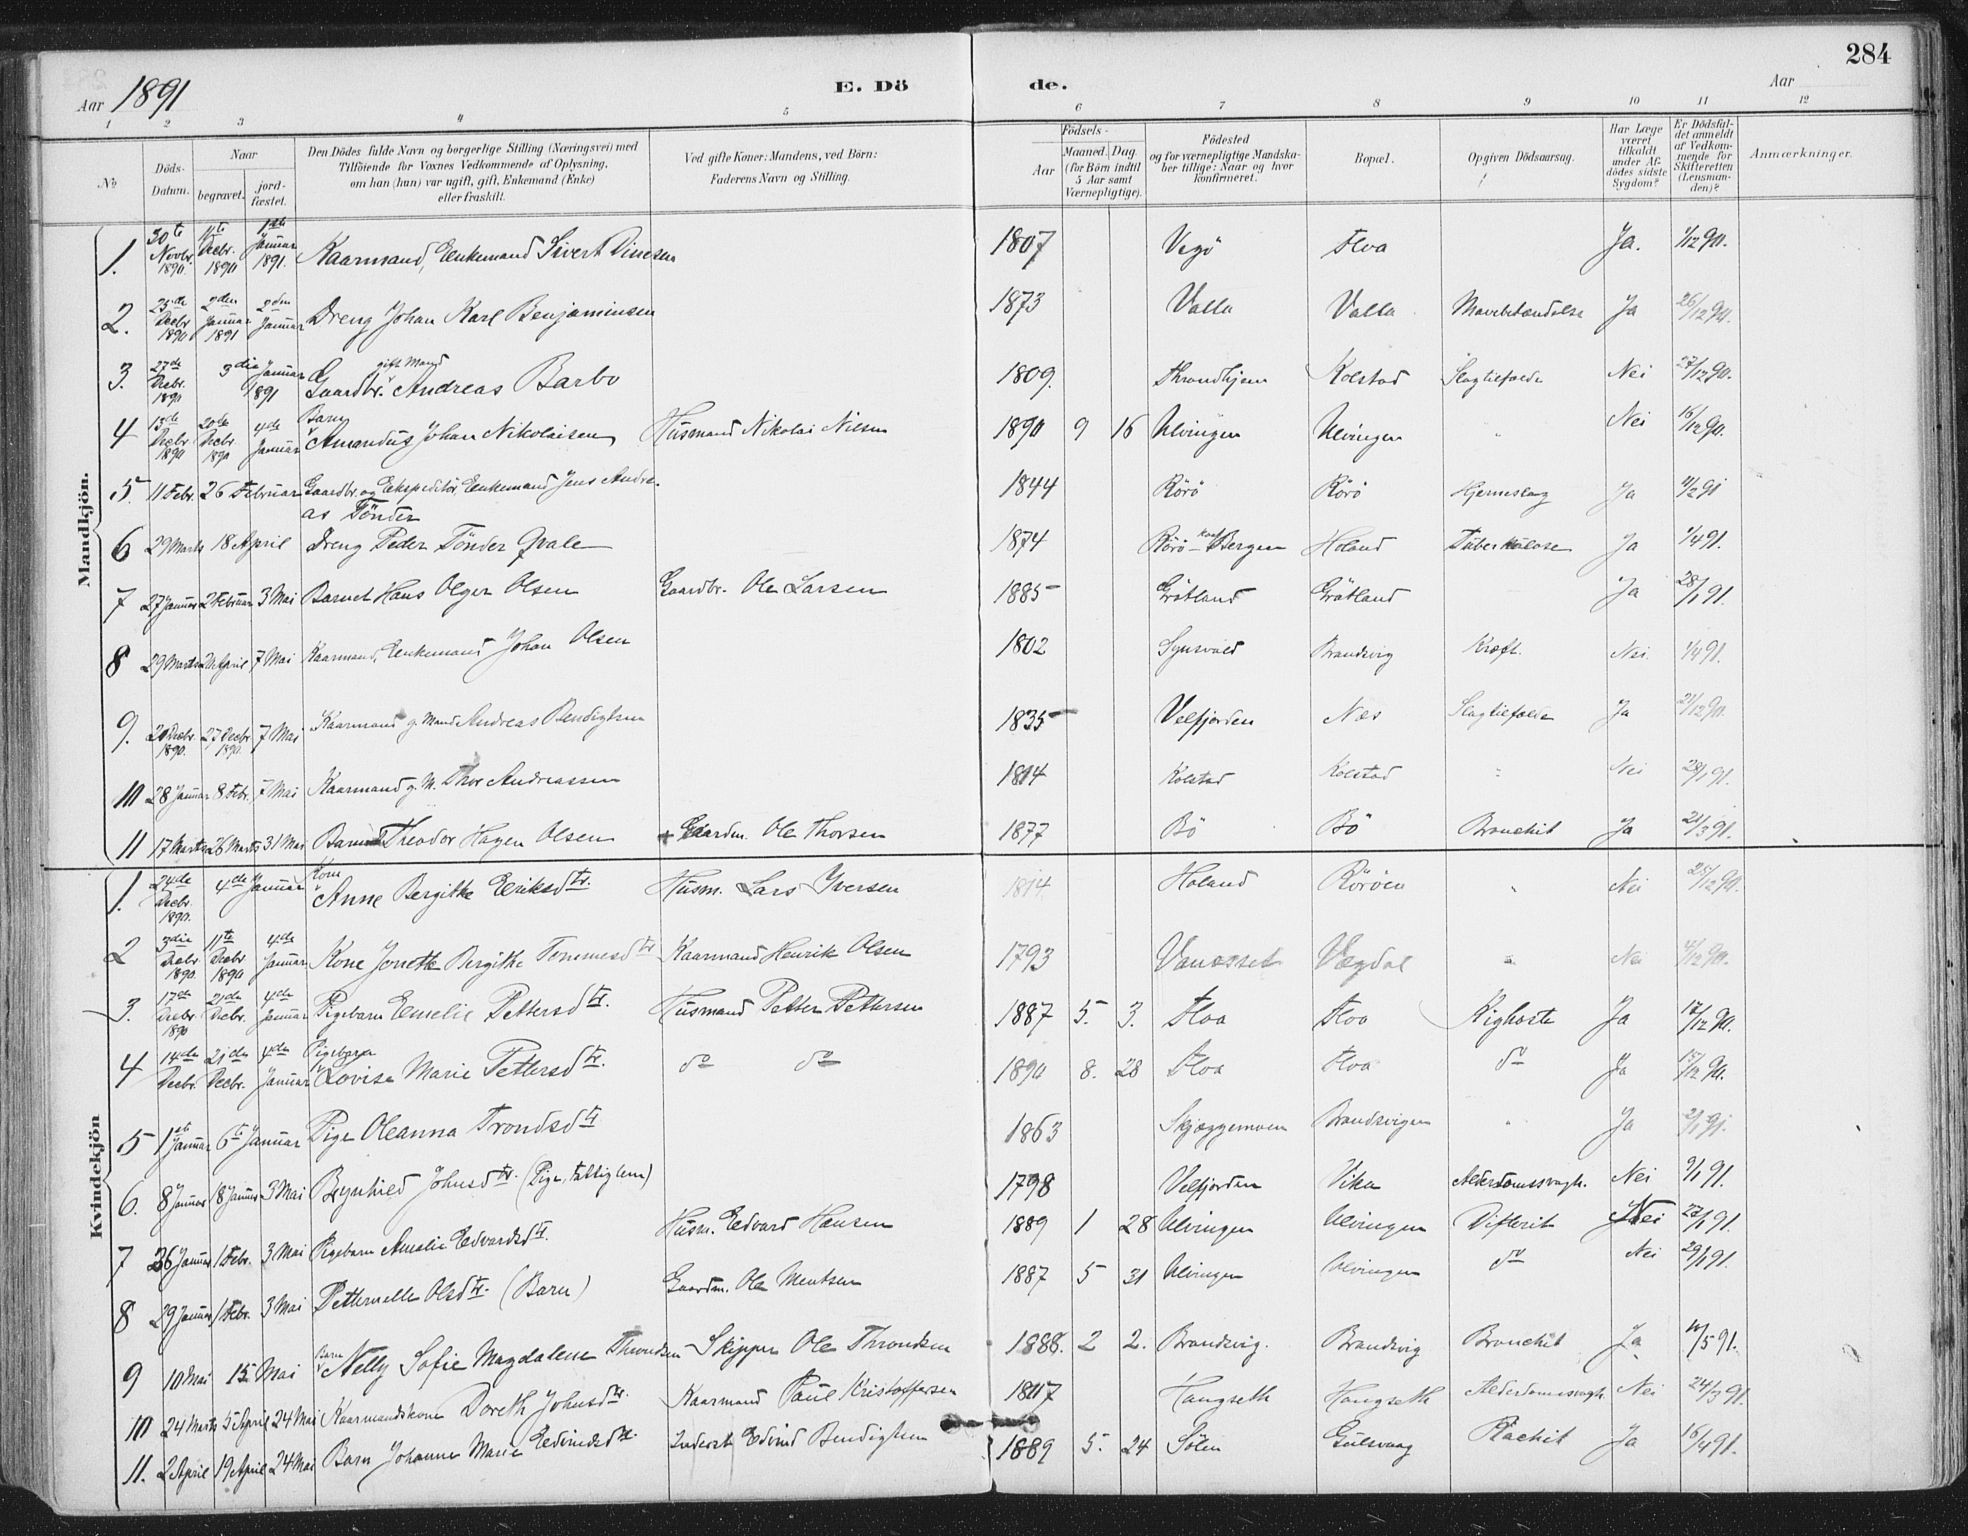 284
Aar 1891
E. Dö
de.
Aar
1 2 3 4 5 6 7 8 9 10 11 12
No
Döds-Datum.
Naar
begravet.
jord-fæstet.
Den Dödes fulde Navn og borgerlige Stilling (Næringsvei) med
Tilföiende for Voxnes Vedkommende af Oplysning,
om han (hun) var ugift, gift, Enkemand (Enke)
eller fraskilt.
Ved gifte Koner: Mandens, ved Börn:
Faderens Navn og Stilling.
Födsels-
Aar
Maaned. Dag.
(for Börn indtil
5 Aar samt
Værnepligtige).
Födested
og for værnepligtige Mandska-
ber tillige: Naar og hvor
konfirmeret.
Bopæl.
Opgiven Dödsaarsag.
Har Læge
været
tilkaldt
under Af-
dödes sidste
Sygdom?
Er Dödsfal-
det anmeldt
af Vedkom-
mende for
Skifteretten
(Lensman-
den)?
Anmærkninger.
Mandkjön.
1. 30te Novbr. 1890 11te Decbr. 1890 1ste Januar 1891. Kaarmand, Enkemand Sivert Dinesen 1807 Vegö Floa Ja. 1/12 90.
2. 25de Decbr 1890 2den Januar 1891 2den Januar Dreng Johan Karl Benjaminsen 1873 Valla Valla Mavebetændelse Ja 26/12 90.
3. 27de Decbr. 1890 3die Januar 1891 Gaardbr. gift Mand Andreas Barbo 1809. Throndhjem Kolstad Slagtilfælde Nei 27/12 90.
4 13de Decbr 1890 20de Decbr 1890 4de Januar Barn Amandus Johan Nikolaisen Husmand Nikolai Nilsen 1890 9 16 Ulvingen Ulvingen " Nei 16/12 90.
5. 11 Febr. 26 Februar Gaardbr. og Ekspeditör, Enkemand Jens Andre-
as Tönder 1844 Rörö Rörö Hjerneslag Ja 11/2 91
6 29 Marts 18 April Dreng Peder Tönder Qvale 1874 Rörö - Bergen Holand Tuberkulose Ja 1/4 91.
7 27 Januar 2 Februar 3 Mai Barnet Hans Olger Olsen Gaardbr. Ole Larsen 1885 Grötland Grötland Ja 28/1 91.
8 29 Marts April 7 Mai Kaarmand, Enkemand Johan Olsen 1802 Synsvold Brandsvig Kræft. Nei. 1/4 91.
9. 20 Decbr. 1890. 27 Decbr 1890. 7 Mai Kaarmand g. Mand Andreas Bendigtsen 1835 Velfjorden Næs Slagtilfælde Ja 21/12 90.
10 28 Januar 8 Febr. 7 Mai Kaarmand g. M. Thor Andreassen 1814 Kolstad Kolstad " Nei 28/1 91.
11 17 Marts 26 Marts 31 Mai Barnet Theodor Hagen Olsen Gaardm. Ole Thorsen 1877 Bö Bö Bronchit Ja 21/3 91.
Kvindekjön
1. 24de Decbr. 1890. 4de Januar Kone Anne Bergitha Eriksdtr. Husm. Lars Iversen 1814 Holand Röröen " Nei 28/12 90.
2 3die Decbr 1890. 11te Decbr 1890 4de Januar Kone Jonette Bergithe Tommesdtr Kaarmand Henrik Olsen 1793 Vanosset Vægdal " Nei 4/12 90.
3. 17de Decbr 1890 21de Decbr. 4de Januar Pigebarn Emelie Pettersdtr. Husmand Petter Pettersen 1887 5. 3. Floa Floa Kighoste Ja 17/12 90.
4 14de Decbr. 21de Decbr. 4de Januar Pigebarn Lovise Marie Pettersdtr. do do 1890 8. 28 Floa Floa do Ja 15/12 90.
5 1ste Januar 6te Januar Pige Oleanna Trondsdtr 1863 Skjæggemoen Brandsvigen " Ja 2/1 91.
6. 8 Januar 18 Januar 3 Mai Brynhild Johnsdtr. (Pige, Fattiglem) 1798 Velfjorden Vika Alderdomssvagh. Nei 9/1 91.
7 26 Januar 1 Febr. 3 Mai Pigebarn Amalie Edvardsdtr. Husm. Edvard Hansen 1889 1 28 Ulvingen Ulvingen Difterit Nei 27/1 91.
8 29 Januar 1 Febr. 3 Mai Petternelle Olsdtr. (Barn) Gaardm. Ole Mentsen 1887 5 31 Ulvingen Ulvingen do Nei 29/1 91.
9 10 Mai 15 Mai Barn Nelly Sofie Magdalene Throndsen Skipper Ole Throndsen 1888. 2 2. Brandsvig. Brandsvig Bronchit Ja 11/5 91.
10 24 Marts 5 April 24 Mai Kaarmandskone Doreth Johnsdtr. Kaarmand Paul Kristoffersen 1807 Hongseth Hongseth Alderdomssvagh. Nei 24/3 91.
11. 2 April 19 April 24 Mai Barn Johanne Marie Edvindsdtr. Inderst Edvind Bendigtsen 1889 5. 24 Sölen Gulsvaag Rachit Ja 16/4 91.